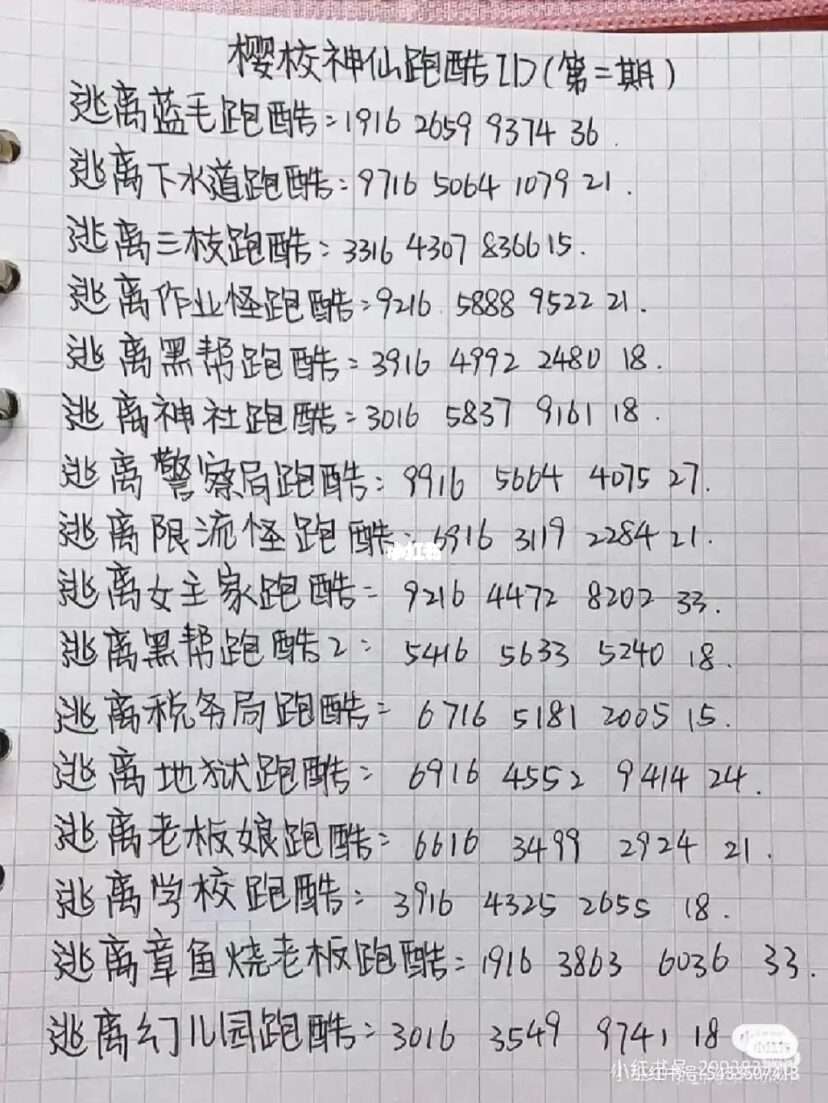 樱校神仙跑酷ID(第二期)
逃离蓝毛跑酷:1916 2659 9374 36.
逃离下水道跑酷:9716 5064 1079 21.
逃离三枝跑酷:3316 4307 8366 15.
逃离作业怪跑酷:9216 5888 9522 21.
逃离黑帮跑酷:3916 4992 2480 18.
逃离神社跑酷:3016 5837 9161 18.
逃离警察局跑酷:9916 5664 4075 27.
逃离限流怪跑酷:6916 3119 2284 21.
小红书
逃离女主家跑酷:9216 4472 8202 33.
逃离黑帮跑酷2:5416 5633 5240 18.
逃离税务局跑酷:6716 5181 2005 15.
逃离地狱跑酷:6916 4552 9414 24.
逃离老板娘跑酷:6616 3499 2924 21.
逃离学校跑酷:3916 4325 2655 18.
逃离章鱼烧老板跑酷:1916 3863 6036 33.
逃离幻儿园跑酷:3016 3549 9741 18
小红书
小红书号: